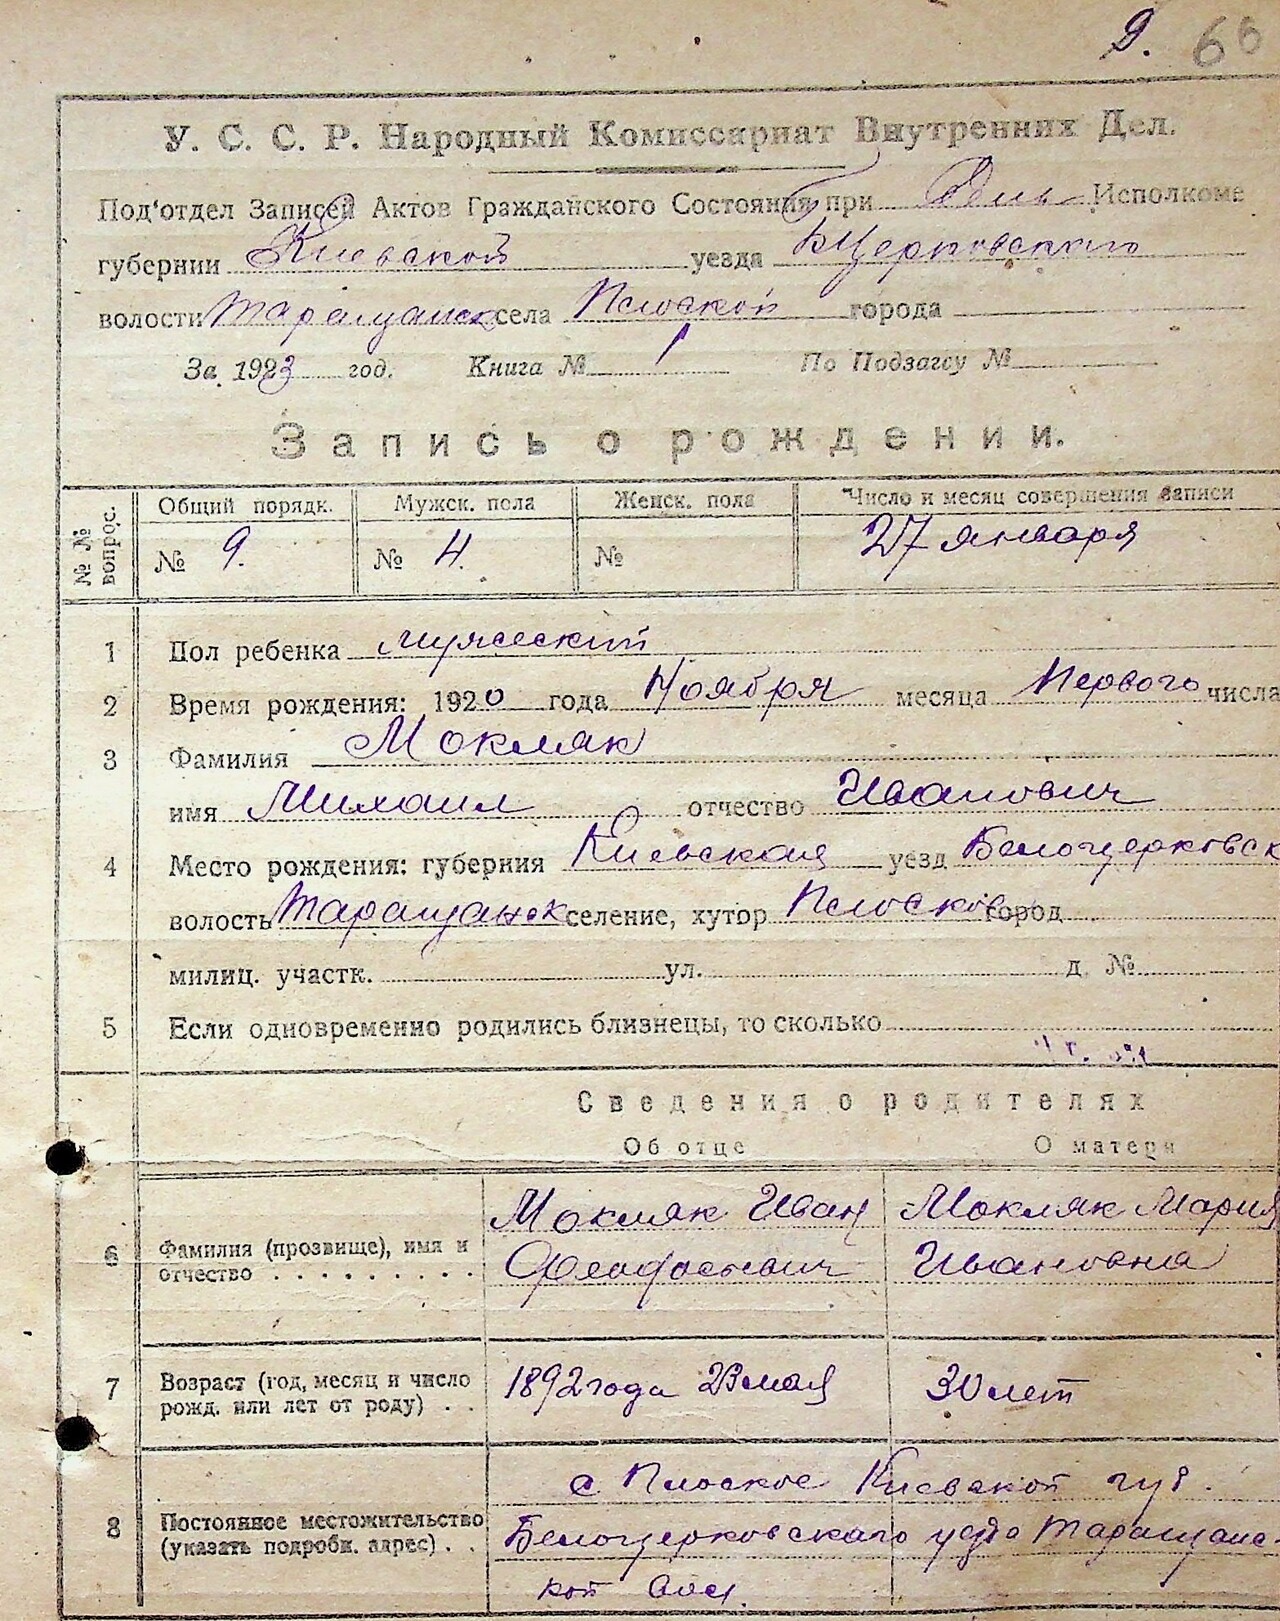 9. 66
У. С. С. Р. Народный Комиссариат Внутренних Дел.
Под'отдел Записей Актов Гражданского Состояния при Исполкоме
губернии Киевской уезда БЦерковского
волости Таращанск села Плоской города
За 1923 год. Книга № 1 По Подзагсу №
Запись о рождении.
№ № вопрос. Общий порядк. Мужск. пола Женск. пола Число и месяц совершения записи
№ 9. № 4. № 27 января
1 Пол ребенка мужеский
2 Время рождения: 1920 года Ноября месяца Первого числа
3 Фамилия Мокляк
имя Михаил отчество Иванович
4 Место рождения: губерния Киевская уезд Белоцерковск
волость Таращанск селение, хутор Плосков город
милиц. участк. ул. д. №
5 Если одновременно родились близнецы, то сколько
Сведения о родителях
Об отце О матери
6 Фамилия (прозвище), имя и отчество . . . . . . . . . Мокляк Иван Феофосьевич Мокляк Мария Ивановна
7 Возраст (год, месяц и число рожд. или лет от роду) . . 1892 года 23 мая 30 лет
8 Постоянное местожительство (указать подробн. адрес) . .
с Плоское Киевской губ.
Белоцерковскаго уезда Таращанс-
кой вол.